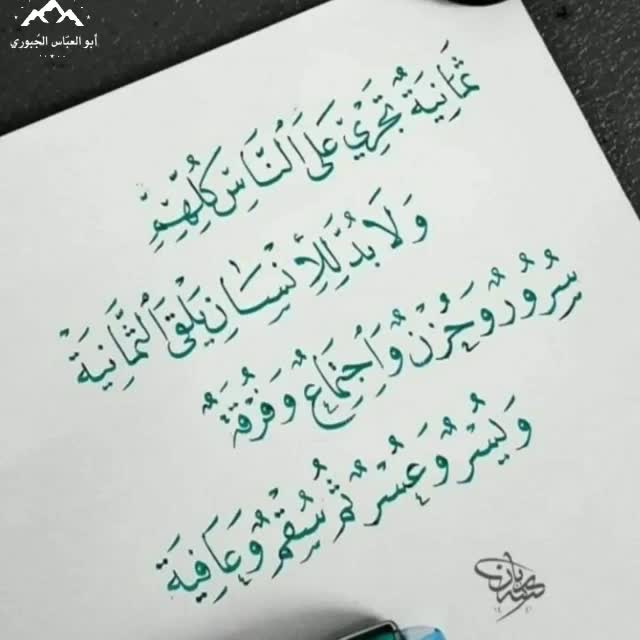 أبو العبّاس الجُبوري
ثَمَانِيَةٌ تَجْرِيْ عَلَى اَلنَّاسِ كُلِّهِمِ
وَلَا بُدَّ لِلْإِنْسَانِ يَلْقَى اَلثَّمَانِيَةْ
سُرُورٌ وَحُزْنٌ وَاَجْتِمَاعٌ وَفُرْقَةٌ
وَيُسْرٌ وَعُسْرٌ ثُمَّ سُقْمٌ وَعَافِيَةْ